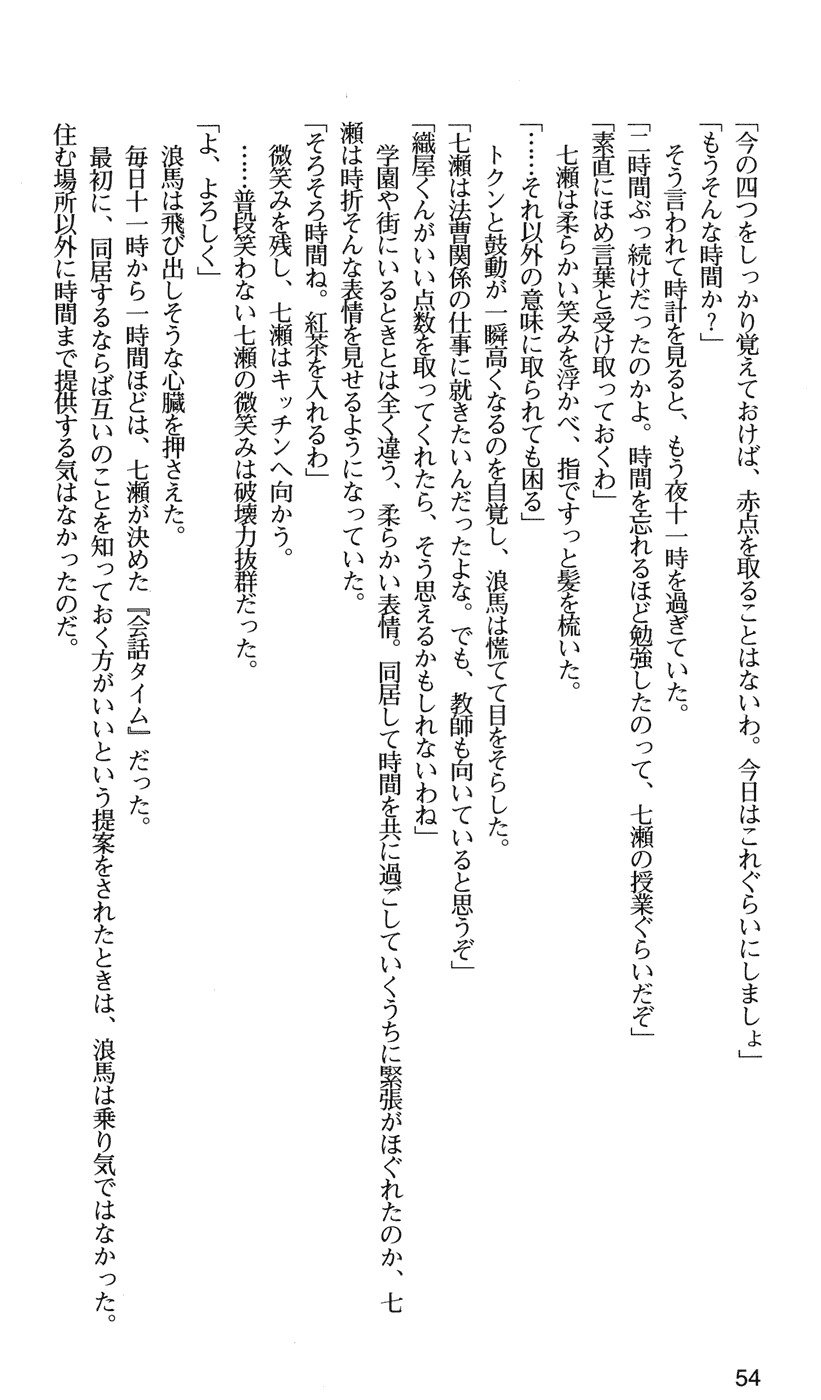 「今の四つをしっかり覚えておけば、赤点を取ることはないわ。今日はこれぐらいにしましょ」
「もうそんな時間か？」
　そう言われて時計を見ると、もう夜十一時を過ぎていた。
「二時間ぶっ続けだったのかよ。時間を忘れるほど勉強したのって、七瀬の授業ぐらいだぞ」
「素直にほめ言葉と受け取っておくわ」
　七瀬は柔らかい笑みを浮かべ、指ですっと髪を梳いた。
「……それ以外の意味に取られても困る」
　トクンと鼓動が一瞬高くなるのを自覚し、浪馬は慌てて目をそらした。
「七瀬は法曹関係の仕事に就きたいんだったよな。でも、教師も向いていると思うぞ」
「織屋くんがいい点数を取ってくれたら、そう思えるかもしれないわね」
　学園や街にいるときとは全く違う、柔らかい表情。同居して時間を共に過ごしていくうちに緊張がほぐれたのか、七
瀬は時折そんな表情を見せるようになっていた。
「そろそろ時間ね。紅茶を入れるわ」
　微笑みを残し、七瀬はキッチンへ向かう。
　……普段笑わない七瀬の微笑みは破壊力抜群だった。
「よ、よろしく」
　浪馬は飛び出しそうな心臓を押さえた。
　毎日十一時から一時間ほどは、七瀬が決めた『会話タイム』だった。
　最初に、同居するならば互いのことを知っておく方がいいという提案をされたときは、浪馬は乗り気ではなかった。
住む場所以外に時間まで提供する気はなかったのだ。
54